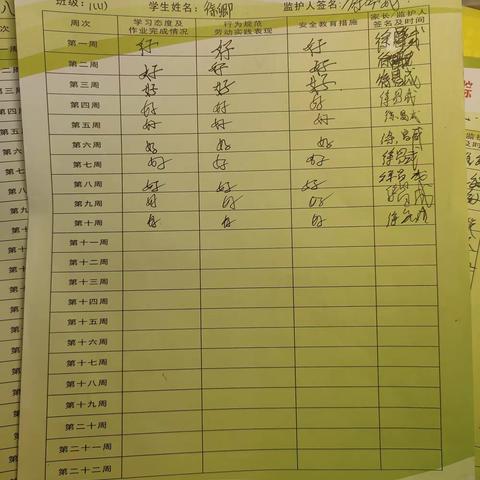 班级: 学生姓名: 徐卿 监护人签名:
周次 学习态度及作业完成情况 行为规范劳动实践表现 安全教育措施 家长/监护人签名及时间
第一周 好 好 好
第二周 好 好 好
第三周 好 好 好 徐昌成
第四周 好 好 好 徐昌成
第五周 好 好 好 徐昌成
第六周 好 好 好 徐昌成
第七周 好 好 好 徐昌成
第八周 好 好 好 徐昌成
第九周 好 好 好
第十周 好 好 好
第十一周
第十二周
第十三周
第十四周
第十五周
第十六周
第十七周
第十八周
第十九周
第二十周
第二十一周
第二十二周